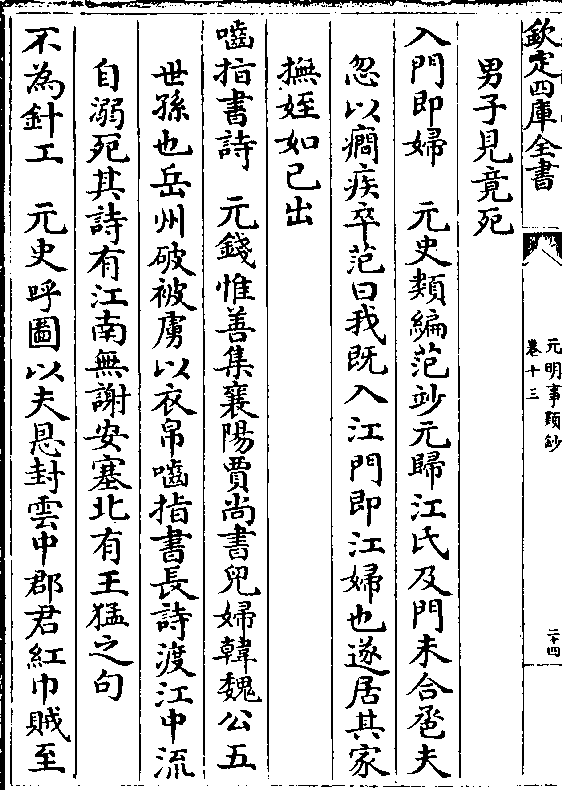 欽定四庫全書
元明事類鈔
卷十三
二十四
男子見竟死
入門即婦　元史類編范竗元歸江氏及門未合巹夫
忽以癇疾卒范曰我既入江門即江婦也遂居其家
撫姪如已出
嚙指書詩　元錢惟善集襄陽賈尚書兒婦韓魏公五
世孫也岳州破被虜以衣帛嚙指書長詩渡江中流
自溺死其詩有江南無謝安塞北有王猛之句
不為針工　元史呼圖以夫恩封雲中郡君紅巾賊至